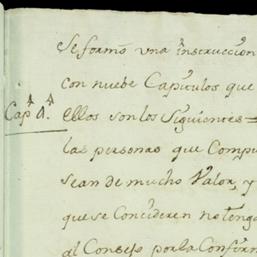 Se formó una instruccion
con nuebe Capitulos que
Cap.º 1.º ellos son los Siguientes =
las personas que Compu
sean de mucho Valor, y
que se Concideren no tenga
al Consejo por la Confirm